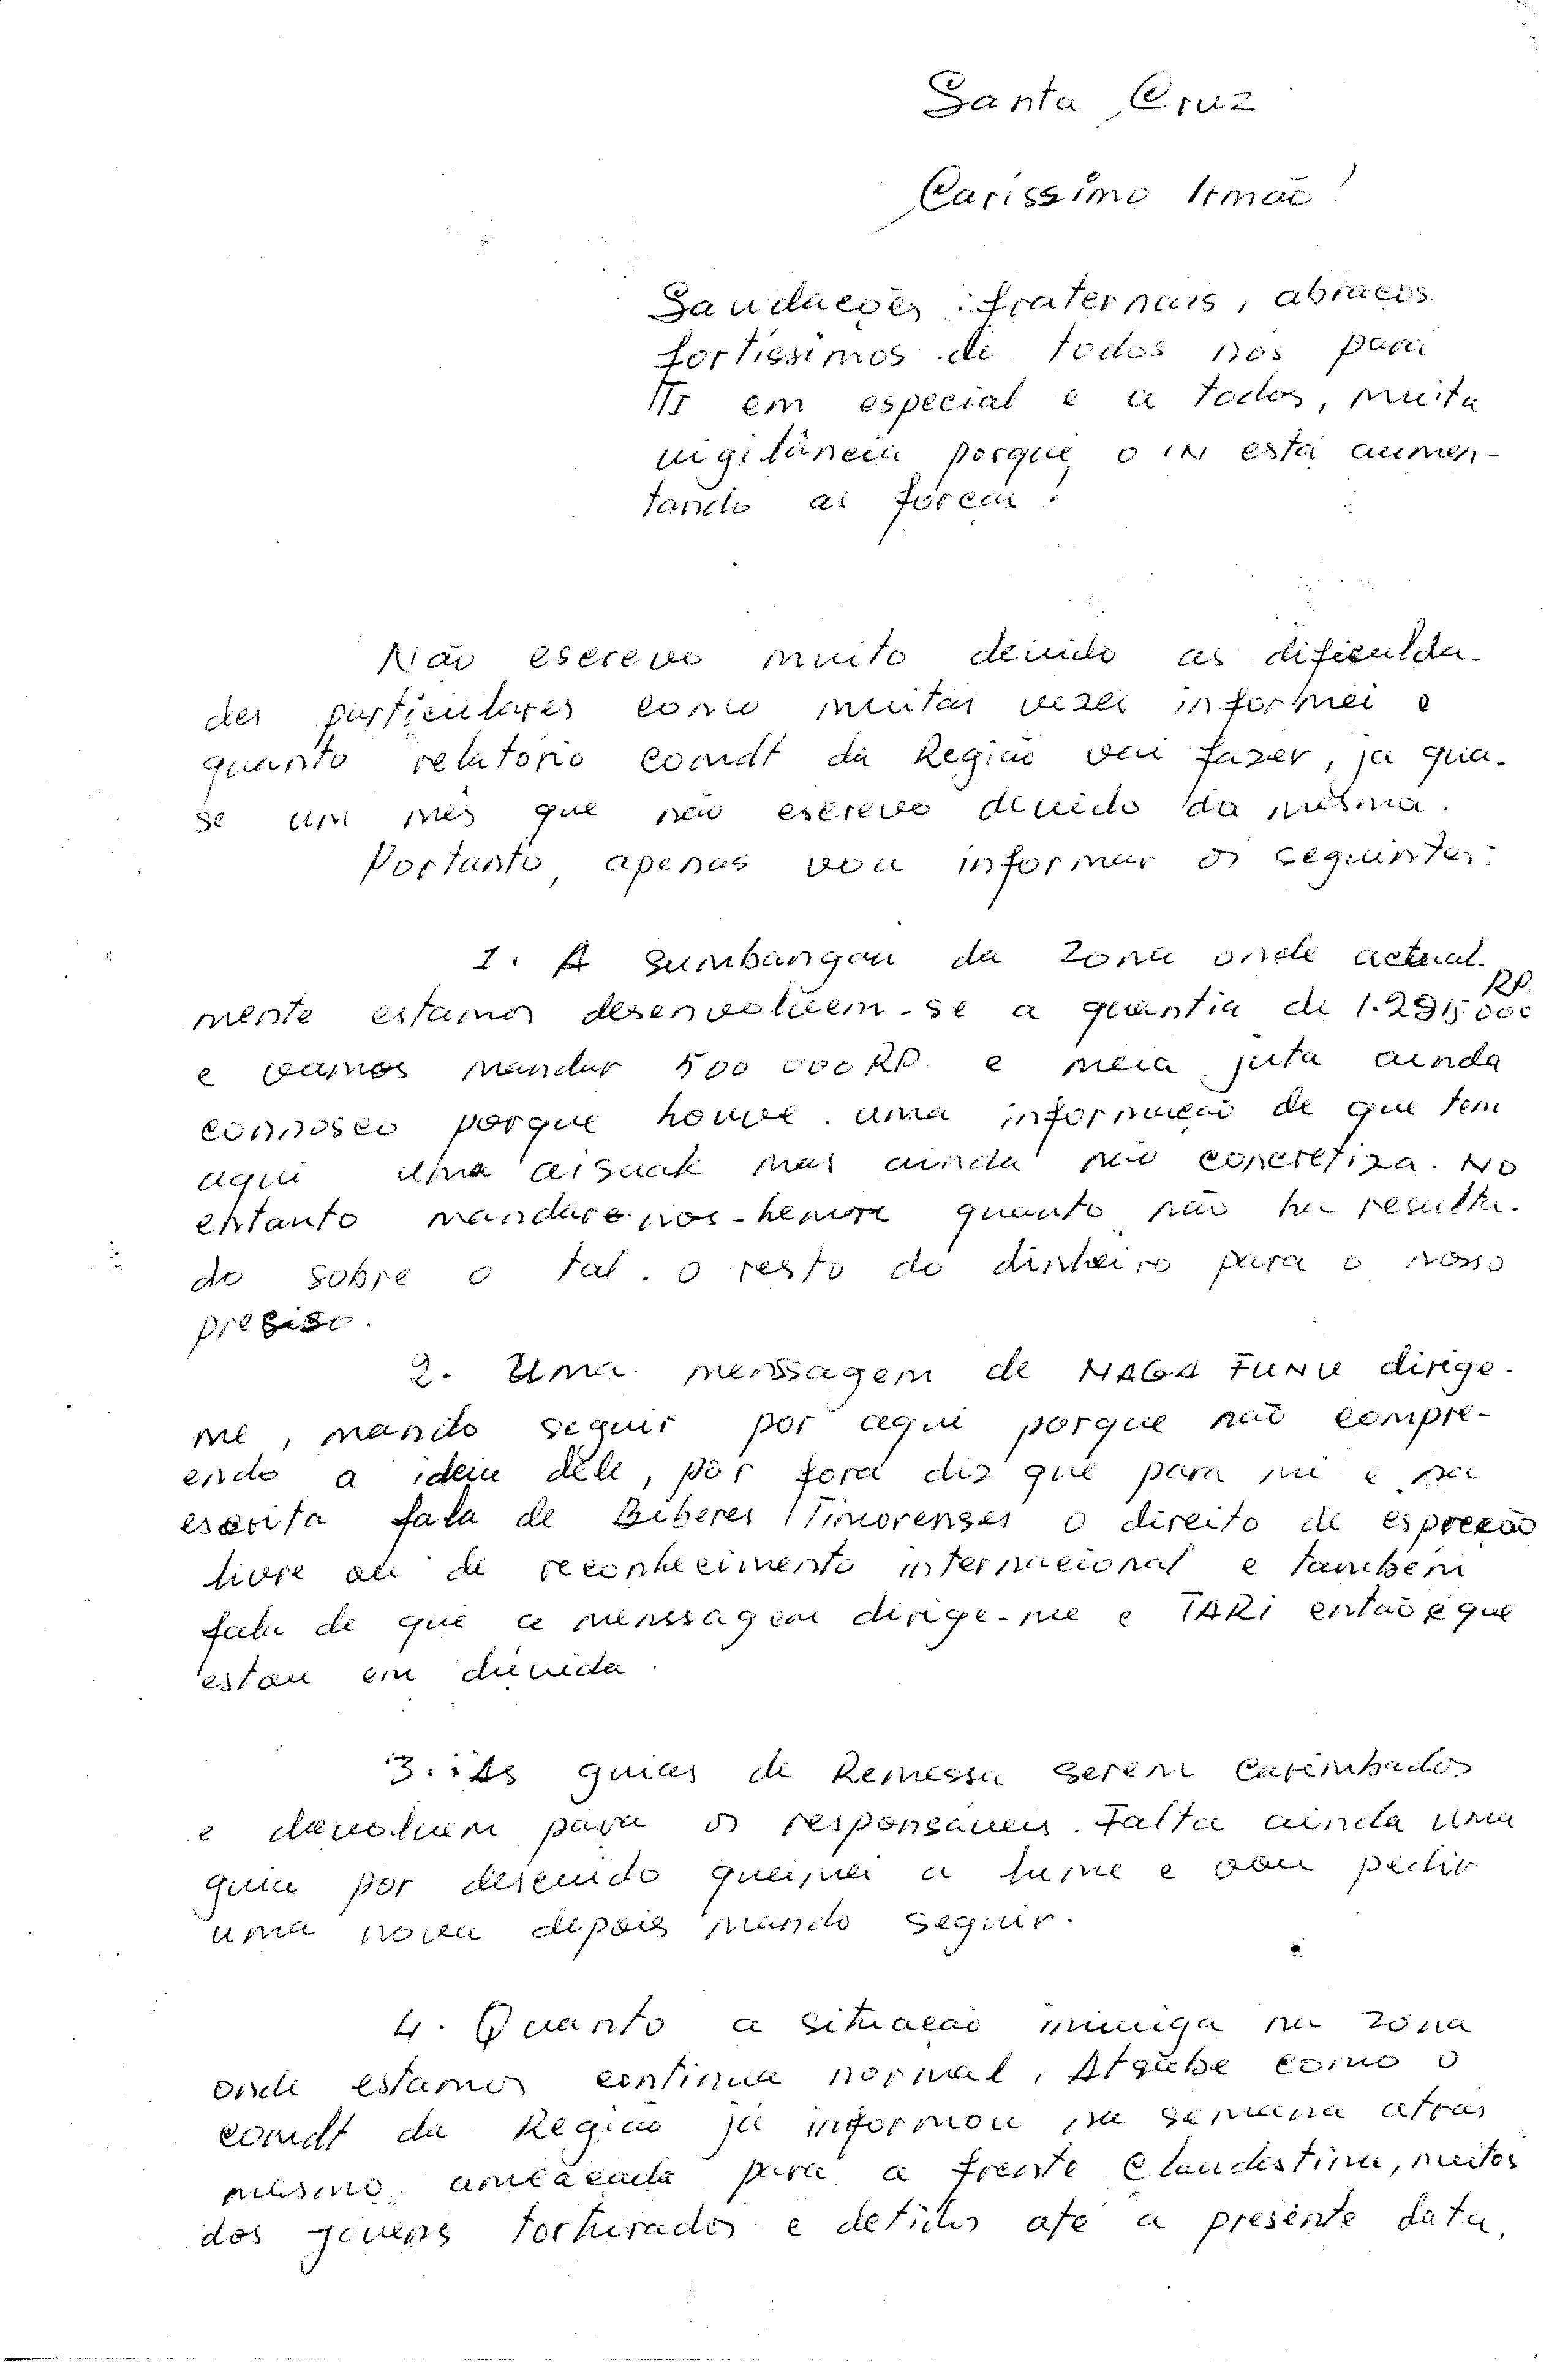 Santa Cruz
Caríssimo Irmão!
Saudações fraternais, abraços
fortíssimos de todos nós para
Ti em especial e a todos, muita
vigilância porque o IN está aumen-
tando as forças!
Não escrevo muito devido as dificulda-
des particulares como muitas vezes informei e
quanto relatório comdt da Região vai fazer, já qua-
se um mês que não escrevo devido da mesma.
Portanto, apenas vou informar os seguintes:
1. A sumbangan da zona onde actual-
mente estamos desenvolvem-se a quantia de 1.295.000 RP.
e vamos mandar 500 000 RP. e meia juta ainda
connosco porque houve uma informação de que tem
aqui uma aisuak mas ainda não concretiza. No
entanto quanto não ha resulta-
do sobre o tal. o resto do dinheiro para o nosso
preciso.
2. Uma menssagem de MAGA FUNU dirige-
me, mando seguir por aqui porque não compre-
endo a ideia dele, por fora diz que para mi e na
escrita fala de Biberes Timorenses o direito de espreção
livre ou de reconhecimento internacional e também
fala de que a menssagem dirige-me e TARI então é que
estou em dúvida.
3. As guias de Remessa serem carimbados
e devolvem para os responsáveis. Falta ainda uma
guia por descuido queimei a lume e vou pedir
uma nova depois mando seguir.
4. Quanto a situação inimiga na zona
onde estamos continua normal, Atsabe como o
comdt da Região já informou na semana atrás
mesmo ameaçada para a frente Clandistina, muitos
dos jovens torturados e detidos até a presente data,